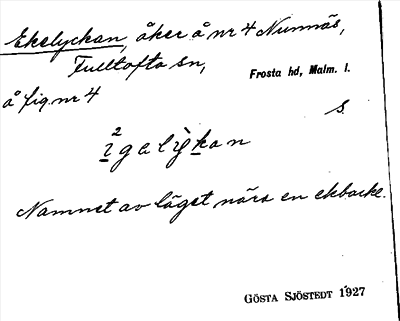 Ekelyckan, åker å nr 4 Nunnäs,
Fulltofta sn,
Frosta hd, Malm. l.
å fig. nr 4
s.
Namnet av läget nära en ekbacke.
GÖSTA SJÖSTEDT 1927